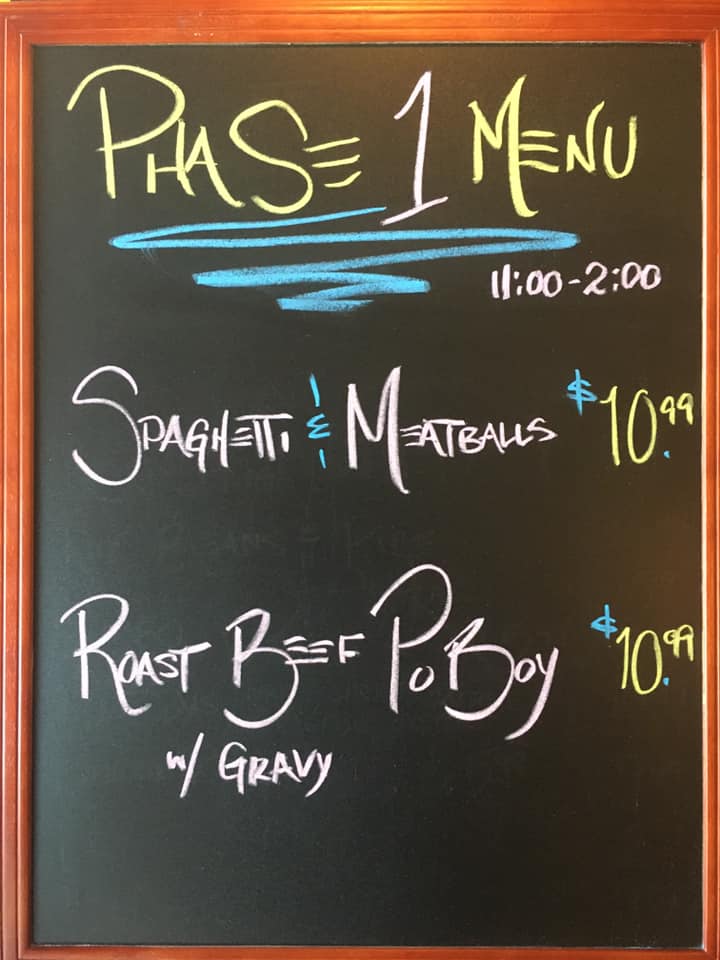 PHASE 1 MENU
11:00-2:00
SPAGHETTI & MEATBALLS $10.99
ROAST BEEF PO BOY $10.99
w/ GRAVY